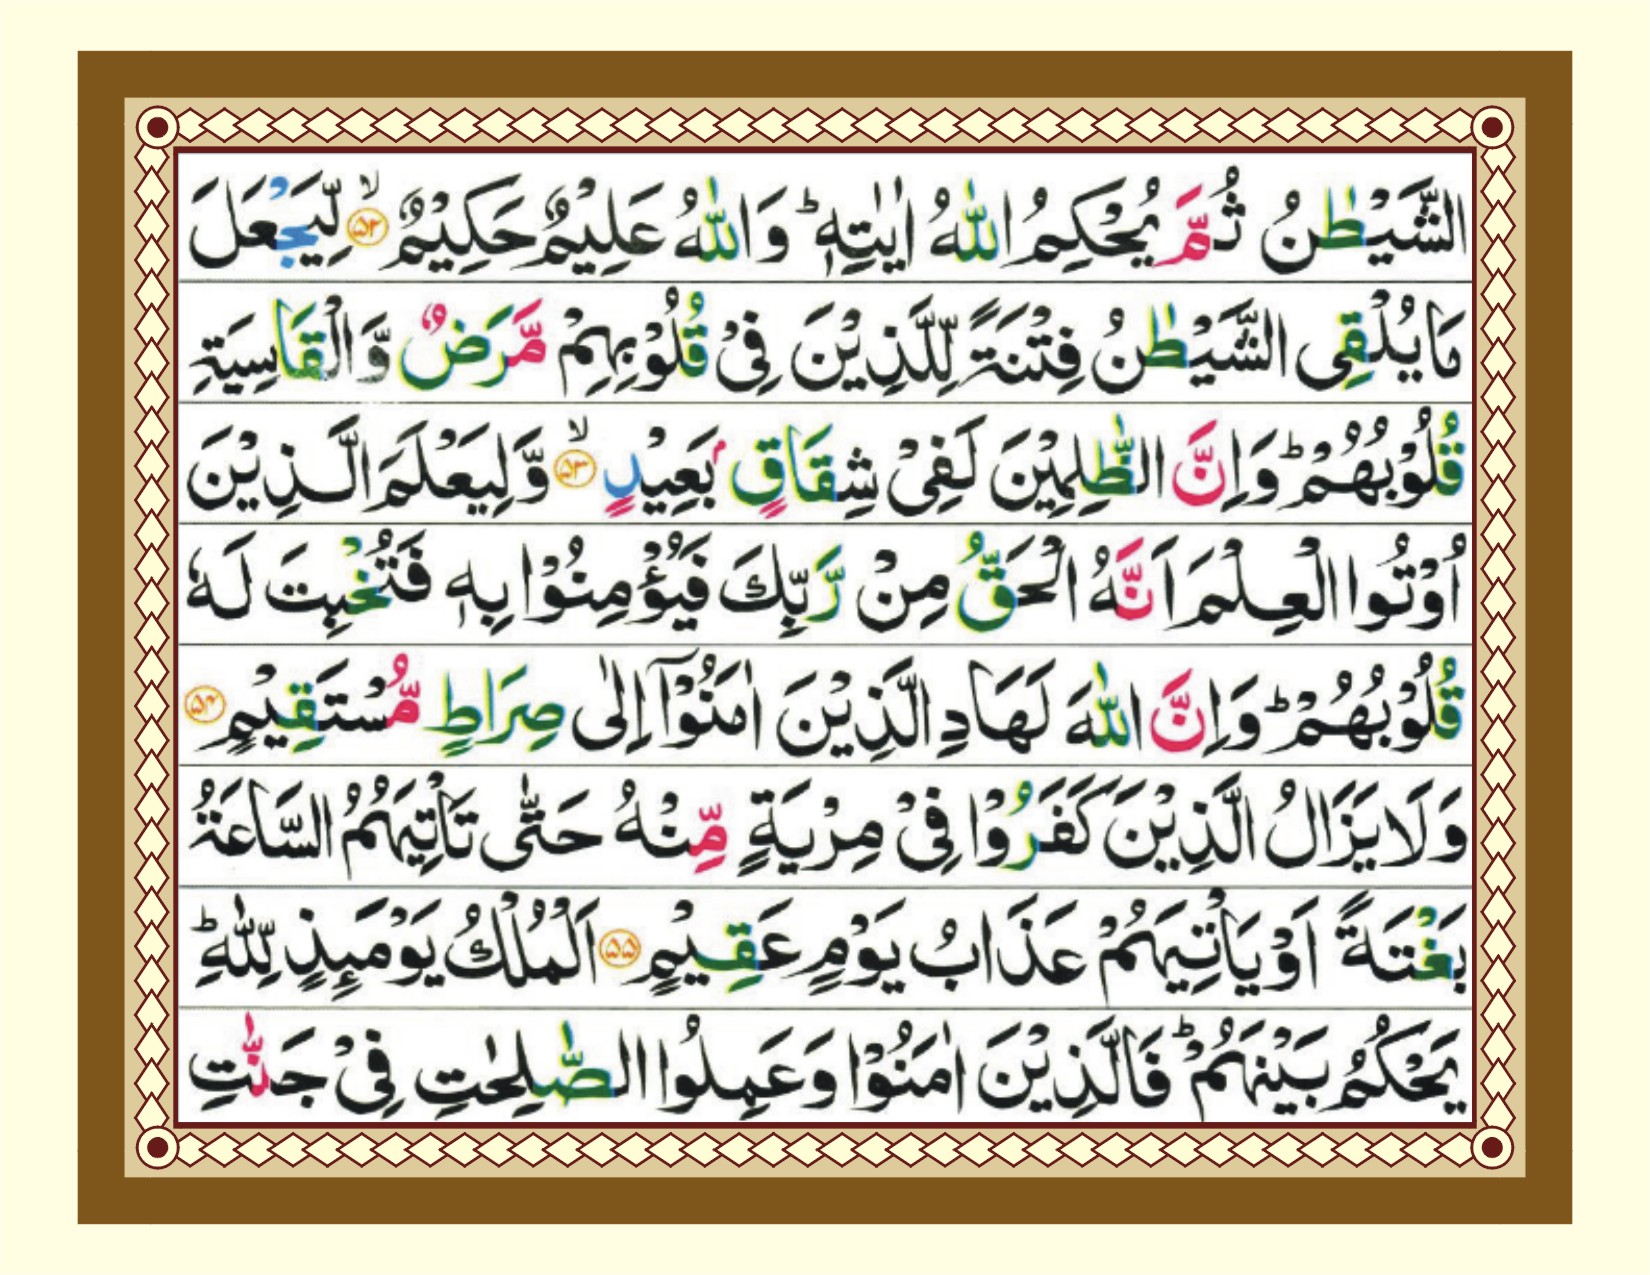 الشَّيْطٰنُ ثُمَّ يُحْكِمُ اللّٰهُ اٰيٰتِهٖ ؕ وَاللّٰهُ عَلِيْمٌ حَكِيْمٌ ۙ‏﴿۵۲﴾ لِّيَجْعَلَ
مَا يُلْقِى الشَّيْطٰنُ فِتْنَةً لِّلَّذِيْنَ فِىْ قُلُوْبِهِمْ مَّرَضٌ وَّالْقَاسِيَةِ
قُلُوْبُهُمْ ؕ وَاِنَّ الظّٰلِمِيْنَ لَفِىْ شِقَاقٍۢ بَعِيْدٍ ۙ‏﴿۵۳﴾ وَّلِيَعْلَمَ الَّذِيْنَ
اُوْتُوا الْعِلْمَ اَنَّهُ الْحَقُّ مِنْ رَّبِّكَ فَيُؤْمِنُوْا بِهٖ فَتُخْبِتَ لَهٗ
قُلُوْبُهُمْ ؕ وَاِنَّ اللّٰهَ لَهَادِ الَّذِيْنَ اٰمَنُوْۤا اِلٰى صِرَاطٍ مُّسْتَقِيْمٍ ﴿۵۴﴾
وَلَا يَزَالُ الَّذِيْنَ كَفَرُوْا فِىْ مِرْيَةٍ مِّنْهُ حَتّٰى تَاْتِيَهُمُ السَّاعَةُ
بَغْتَةً اَوْ يَاْتِيَهُمْ عَذَابُ يَوْمٍ عَقِيْمٍ ﴿۵۵﴾ اَلْمُلْكُ يَوْمَئِذٍ لِّلّٰهِ ؕ
يَحْكُمُ بَيْنَهُمْ ؕ فَالَّذِيْنَ اٰمَنُوْا وَعَمِلُوا الصّٰلِحٰتِ فِىْ جَنّٰتِ